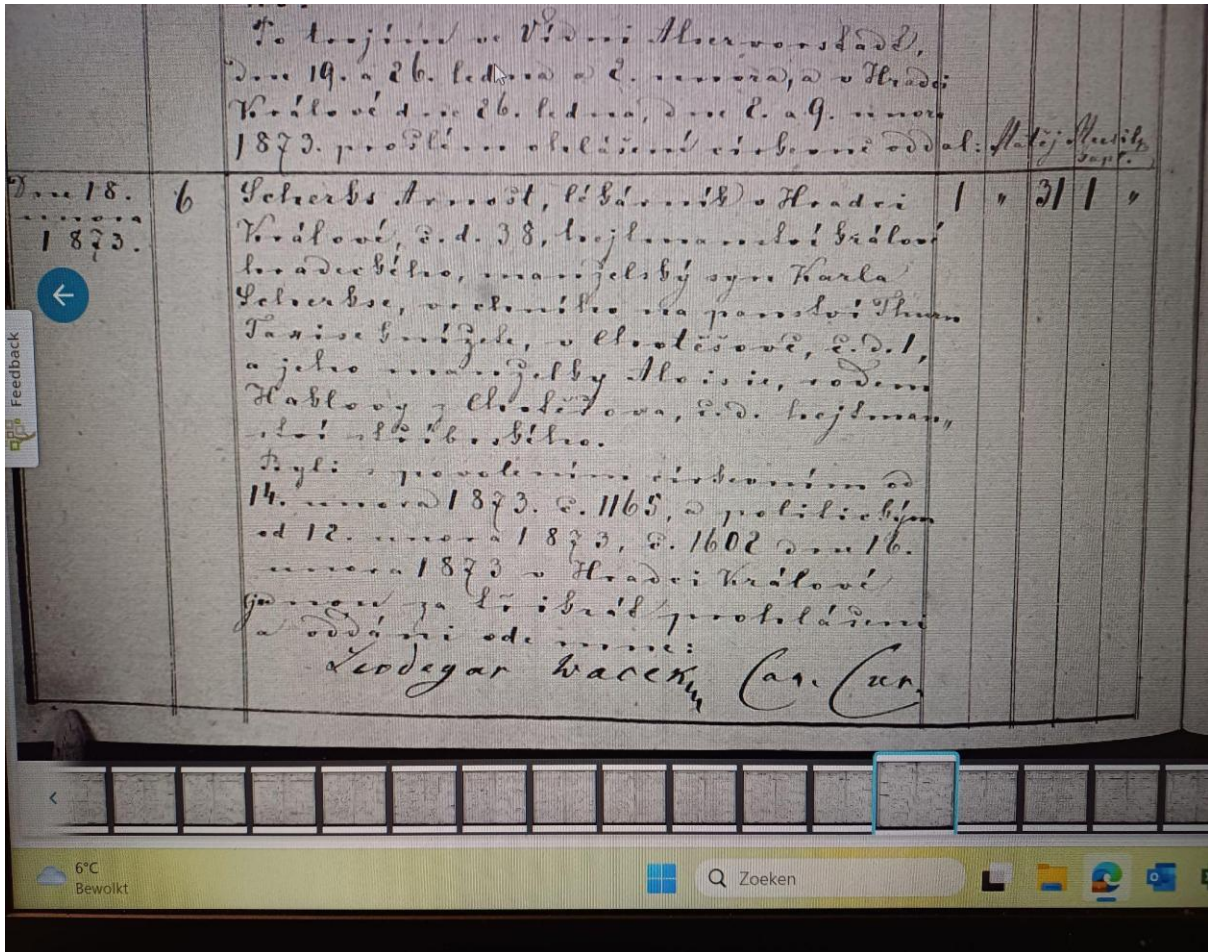 Po trojím ve Vídni Alservorstädt,
dne 19. a 26. ledna a 2. února, a v Hradci
Králové dne 26. ledna, dne 2. a 9. února
1873. prošlém ohlášení církevně oddal: Matěj
kapl.
Dne 18.
února
1873.
6
Scherks Arnošt, lékárník v Hradci
1 " 31 1 "
Králové, č. d. 38, hejtmanství králové
hradeckého, manželský syn Karla
Scherkse, vrchního na panství Thurn
Taxise knížete, v Chotěšově, č. d. 1,
a jeho manželky Aloisie, rodem
z Chotěšova, č. d. hejtman„
ství stříbrského.
Byli s povolením církevním od
14. února 1873. č. 1165, a politickým
od 12. února 1873, č. 1602 dne 16.
února 1873 v Hradci Králové
jednou za třikrát prohlášeni
a oddáni ode mne:
Leodegar Wacek Can. Cur.
Feedback
6°C
Bewolkt
Zoeken